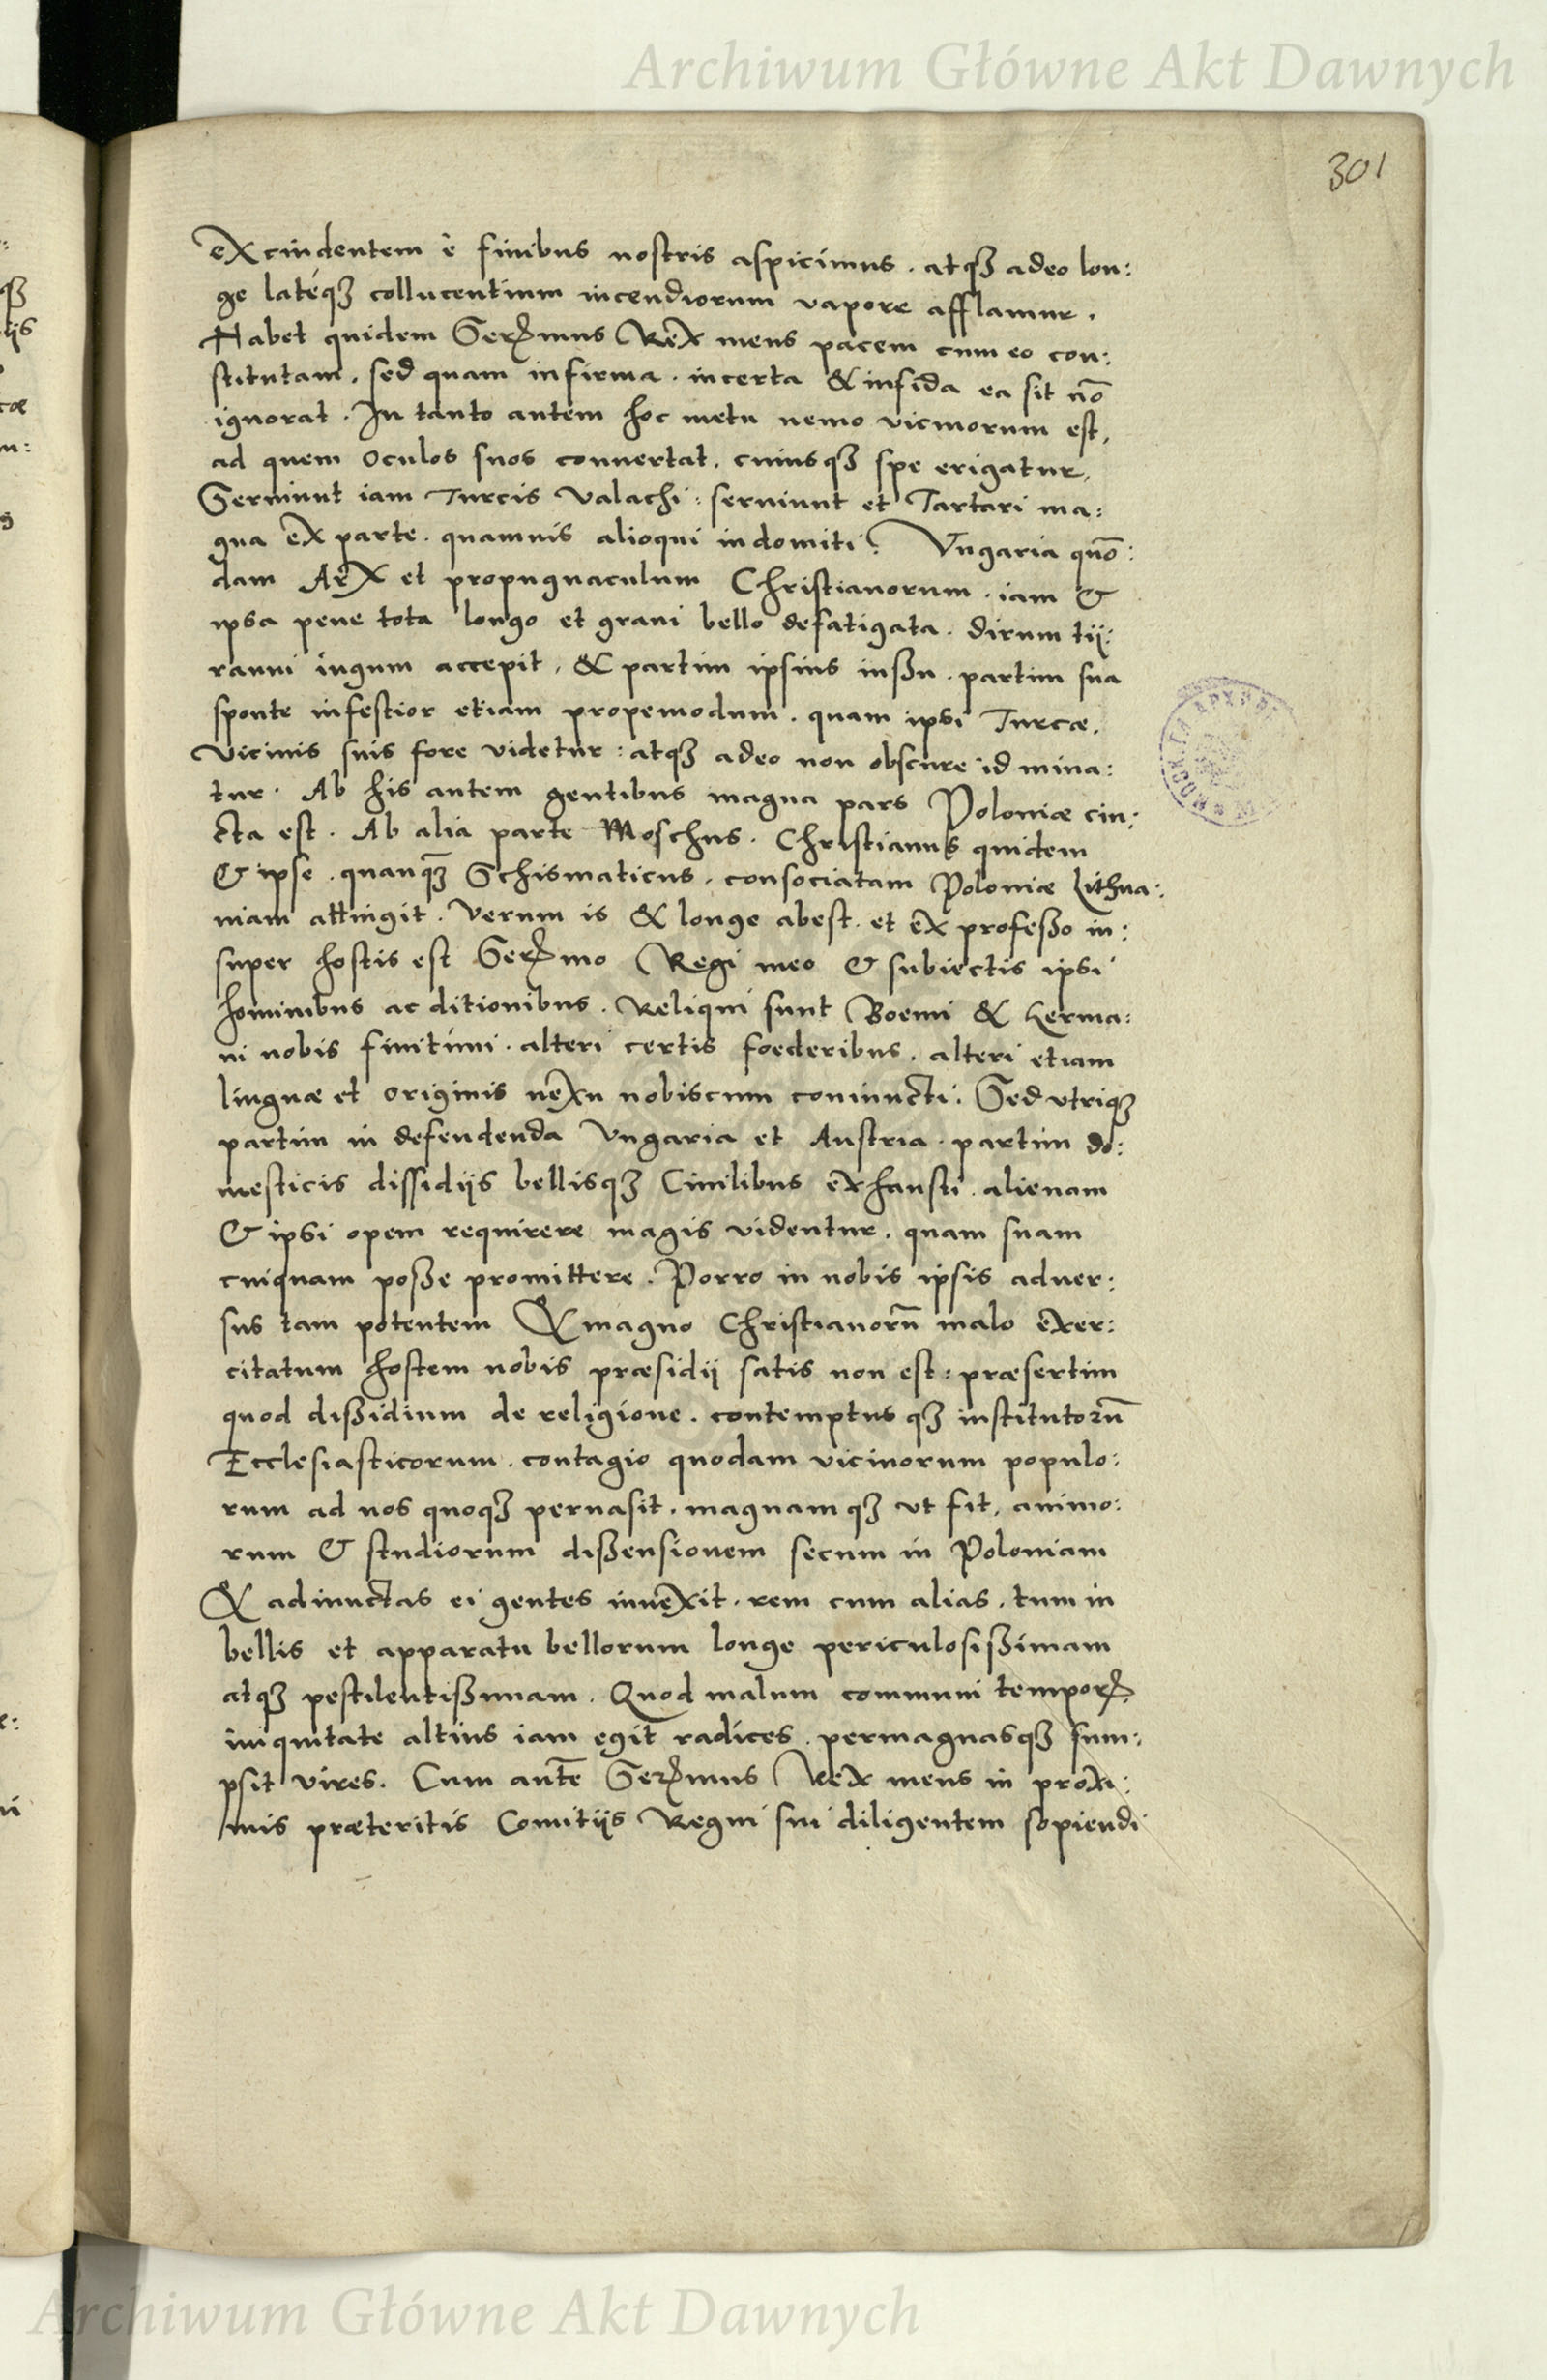 Archiwum Główne Akt Dawnych
301
excindentem è finibus nostris aspicimus. atqȝ adeo lon:
ge latéqȝ collucentium incendiorum vapore afflamur.
Habet quidem Serꝫmus Rex meus pacem cum eo con:
stitutam, sed quam infirma. incerta & infida ea sit nō
ignorat. In tanto autem hoc metu nemo vicinorum est,
ad quem oculos suos conuertat, cuiusqȝ spe erigatur,
Seruiunt iam Turcis Valachi: seruiunt et Tartari ma:
gna ex parte. quamuis alioqui indomiti? Vngaria quō:
dam Arx et propugnaculum Christianorum. iam &
ipsa pene tota longo et graui bello defatigata. dirum tij:
ranni iugum accepit, & partim ipsius iussu. partim sua
sponte infestior etiam propemodum. quam ipsi Turcæ,
vicinis suis fore videtur: atqȝ adeo non obscure id mina:
tur. Ab his autem gentibus magna pars Poloniæ cin:
cta est. Ab alia parte Moschus. Christianus quidem
& ipse. quanqȝ̄ Schismaticus. consociatam Poloniæ Lithua:
niam attingit. Verum is & longe abest. et ex professo in:
super hostis est Serꝫmo Regi meo & subiectis ipsi
hominibus ac ditionibus. Reliqui sunt Boemi & Germa:
ni nobis finitimi. alteri certis foederibus. alteri etiam
linguæ et originis nexu nobiscum coniuncti. Sed vtriqȝ
partim in defendenda Vngaria et Austria. partim do:
mesticis dissidijs bellisqȝ Ciuilibus exhausti. alienam
& ipsi opem requirere magis videntur. quam suam
cuiquam posse promittere. Porro in nobis ipsis aduer:
sus tam potentem & magno Christianorū malo exer:
citatum hostem nobis præsidij satis non est: præsertim
quod dissidium de religione. contemptus qȝ institutorū
Ecclesiasticorum. contagio quodam vicinorum populo:
rum ad nos quoqȝ peruasit. magnam qȝ vt fit, animo:
rum & studiorum dissensionem secum in Poloniam
& adiunctas ei gentes inuexit. rem cum alias. tum in
bellis et apparatu bellorum longe periculosissimam
atqȝ pestilentissimam. Quod malum communi temporꝫ
iniquitate altius iam egit radices. permagnasqȝ sum:
psit vires. Cum autē Serꝫmus Rex meus in proxi:
mis præteritis Comitijs Regni sui diligentem sopiendi
Archiwum Główne Akt Dawnych